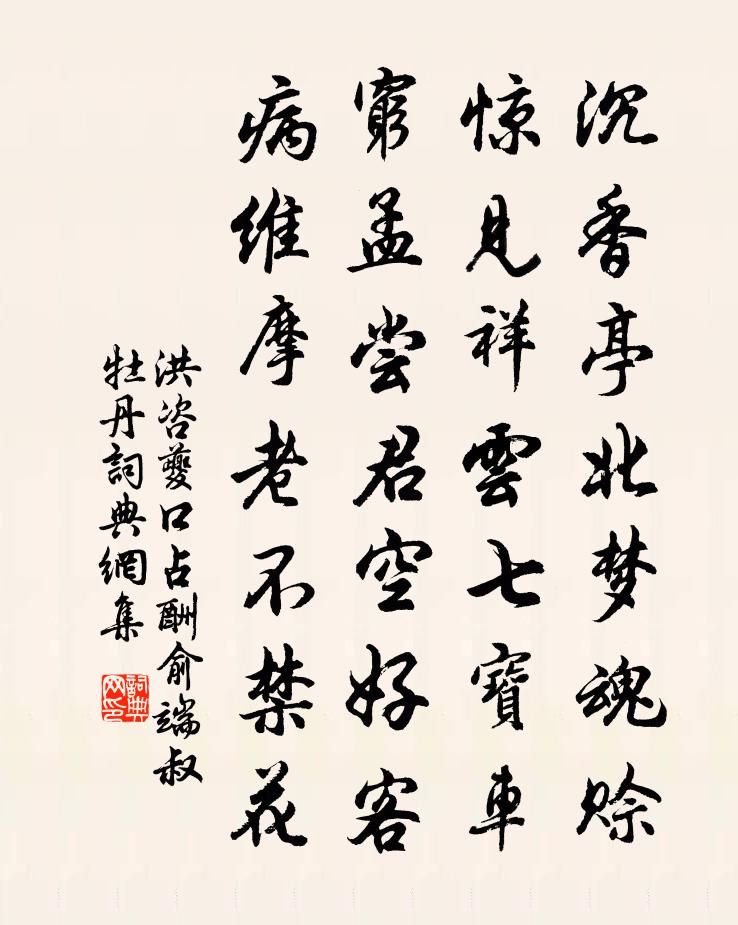 沉香亭北梦魂赊
惊见祥雲七寶車
窮孟尝君空好客
病维摩老不禁花
洪咨夔口占酬俞端叔
牡丹詞典網集
詞典
网印